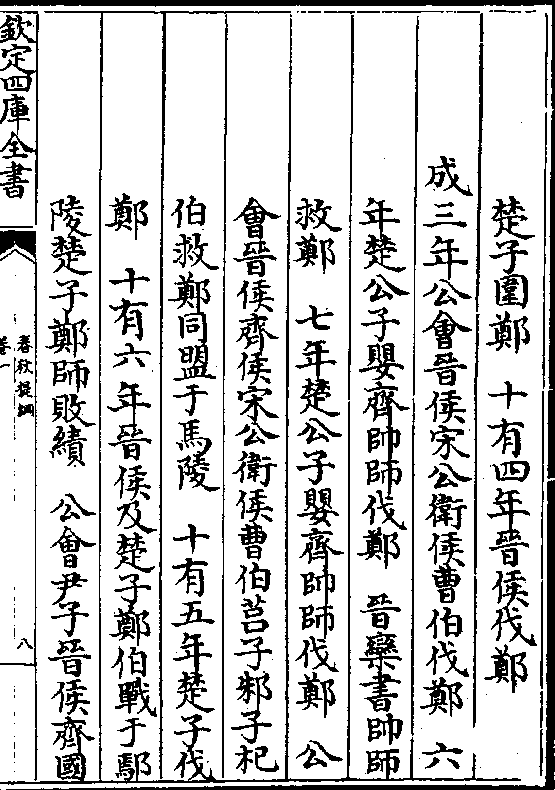 楚子圍鄭　十有四年晉侯伐鄭
成三年公會晉侯宋公衛侯曹伯伐鄭　六
年楚公子嬰齊帥師伐鄭　晉欒書帥師
救鄭　七年楚公子嬰齊帥師伐鄭　公
會晉侯齊侯宋公衛侯曹伯莒子邾子杞
伯救鄭同盟于馬陵　十有五年楚子伐
鄭　十有六年晉侯及楚子鄭伯戰于鄢
陵楚子鄭師敗績　公會尹子晉侯齊國
欽定四庫全書
春秋提綱
卷一
八